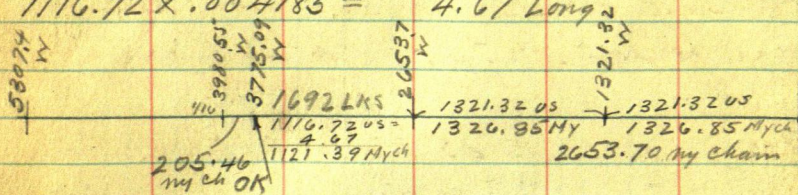 1116.72 X .004185 = 4.67 Long
5307.4 W
3980.55 W
3775.09 W
2653.7 W
1321.32 W
1/16
1692 LKS
1116.72 us =
4.67
1121.39 Mych
205.46
my ch OK
1321.32 us
1326.85 My
1321.32 us
1326.85 Mych
2653.70 my chain